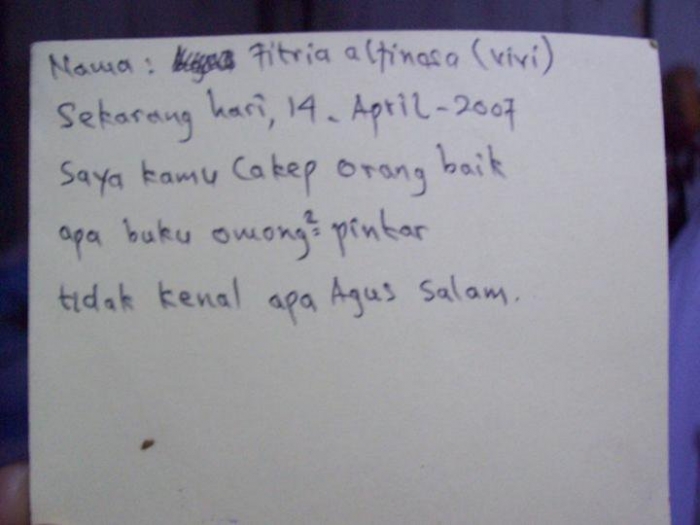 Nama: Fitria alfinasa (vivi)
Sekarang hari, 14. April-2007
saya kamu cakep orang baik
apa buku omong² pintar
tidak kenal apa Agus salam.